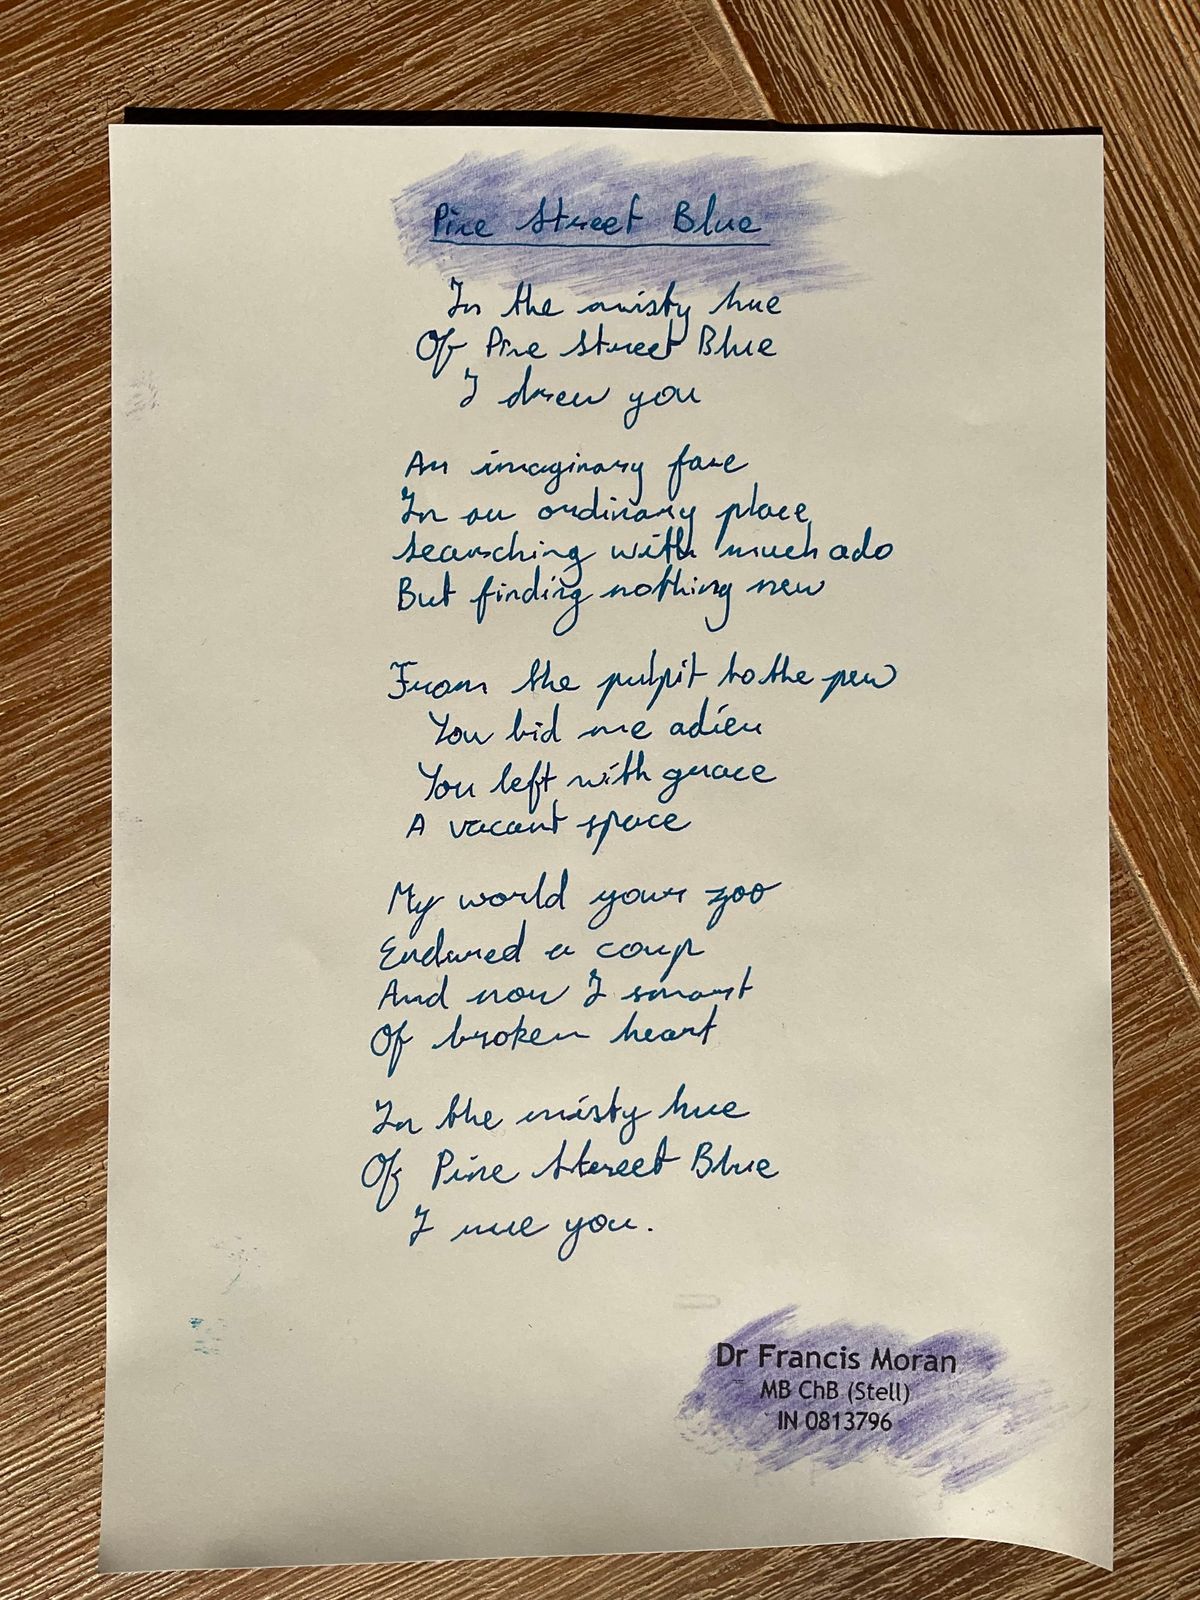 Pine Street Blue
In the misty hue
Of Pine Street Blue
I drew you
An imaginary face
In an ordinary place
Searching with much ado
But finding nothing new
From the pulpit to the pew
You bid me adieu
You left with grace
A vacant space
My world your zoo
Endured a coup
And now I smart
Of broken heart
In the misty hue
Of Pine Street Blue
I rue you.
Dr Francis Moran
MB ChB (Stell)
IN 0813796